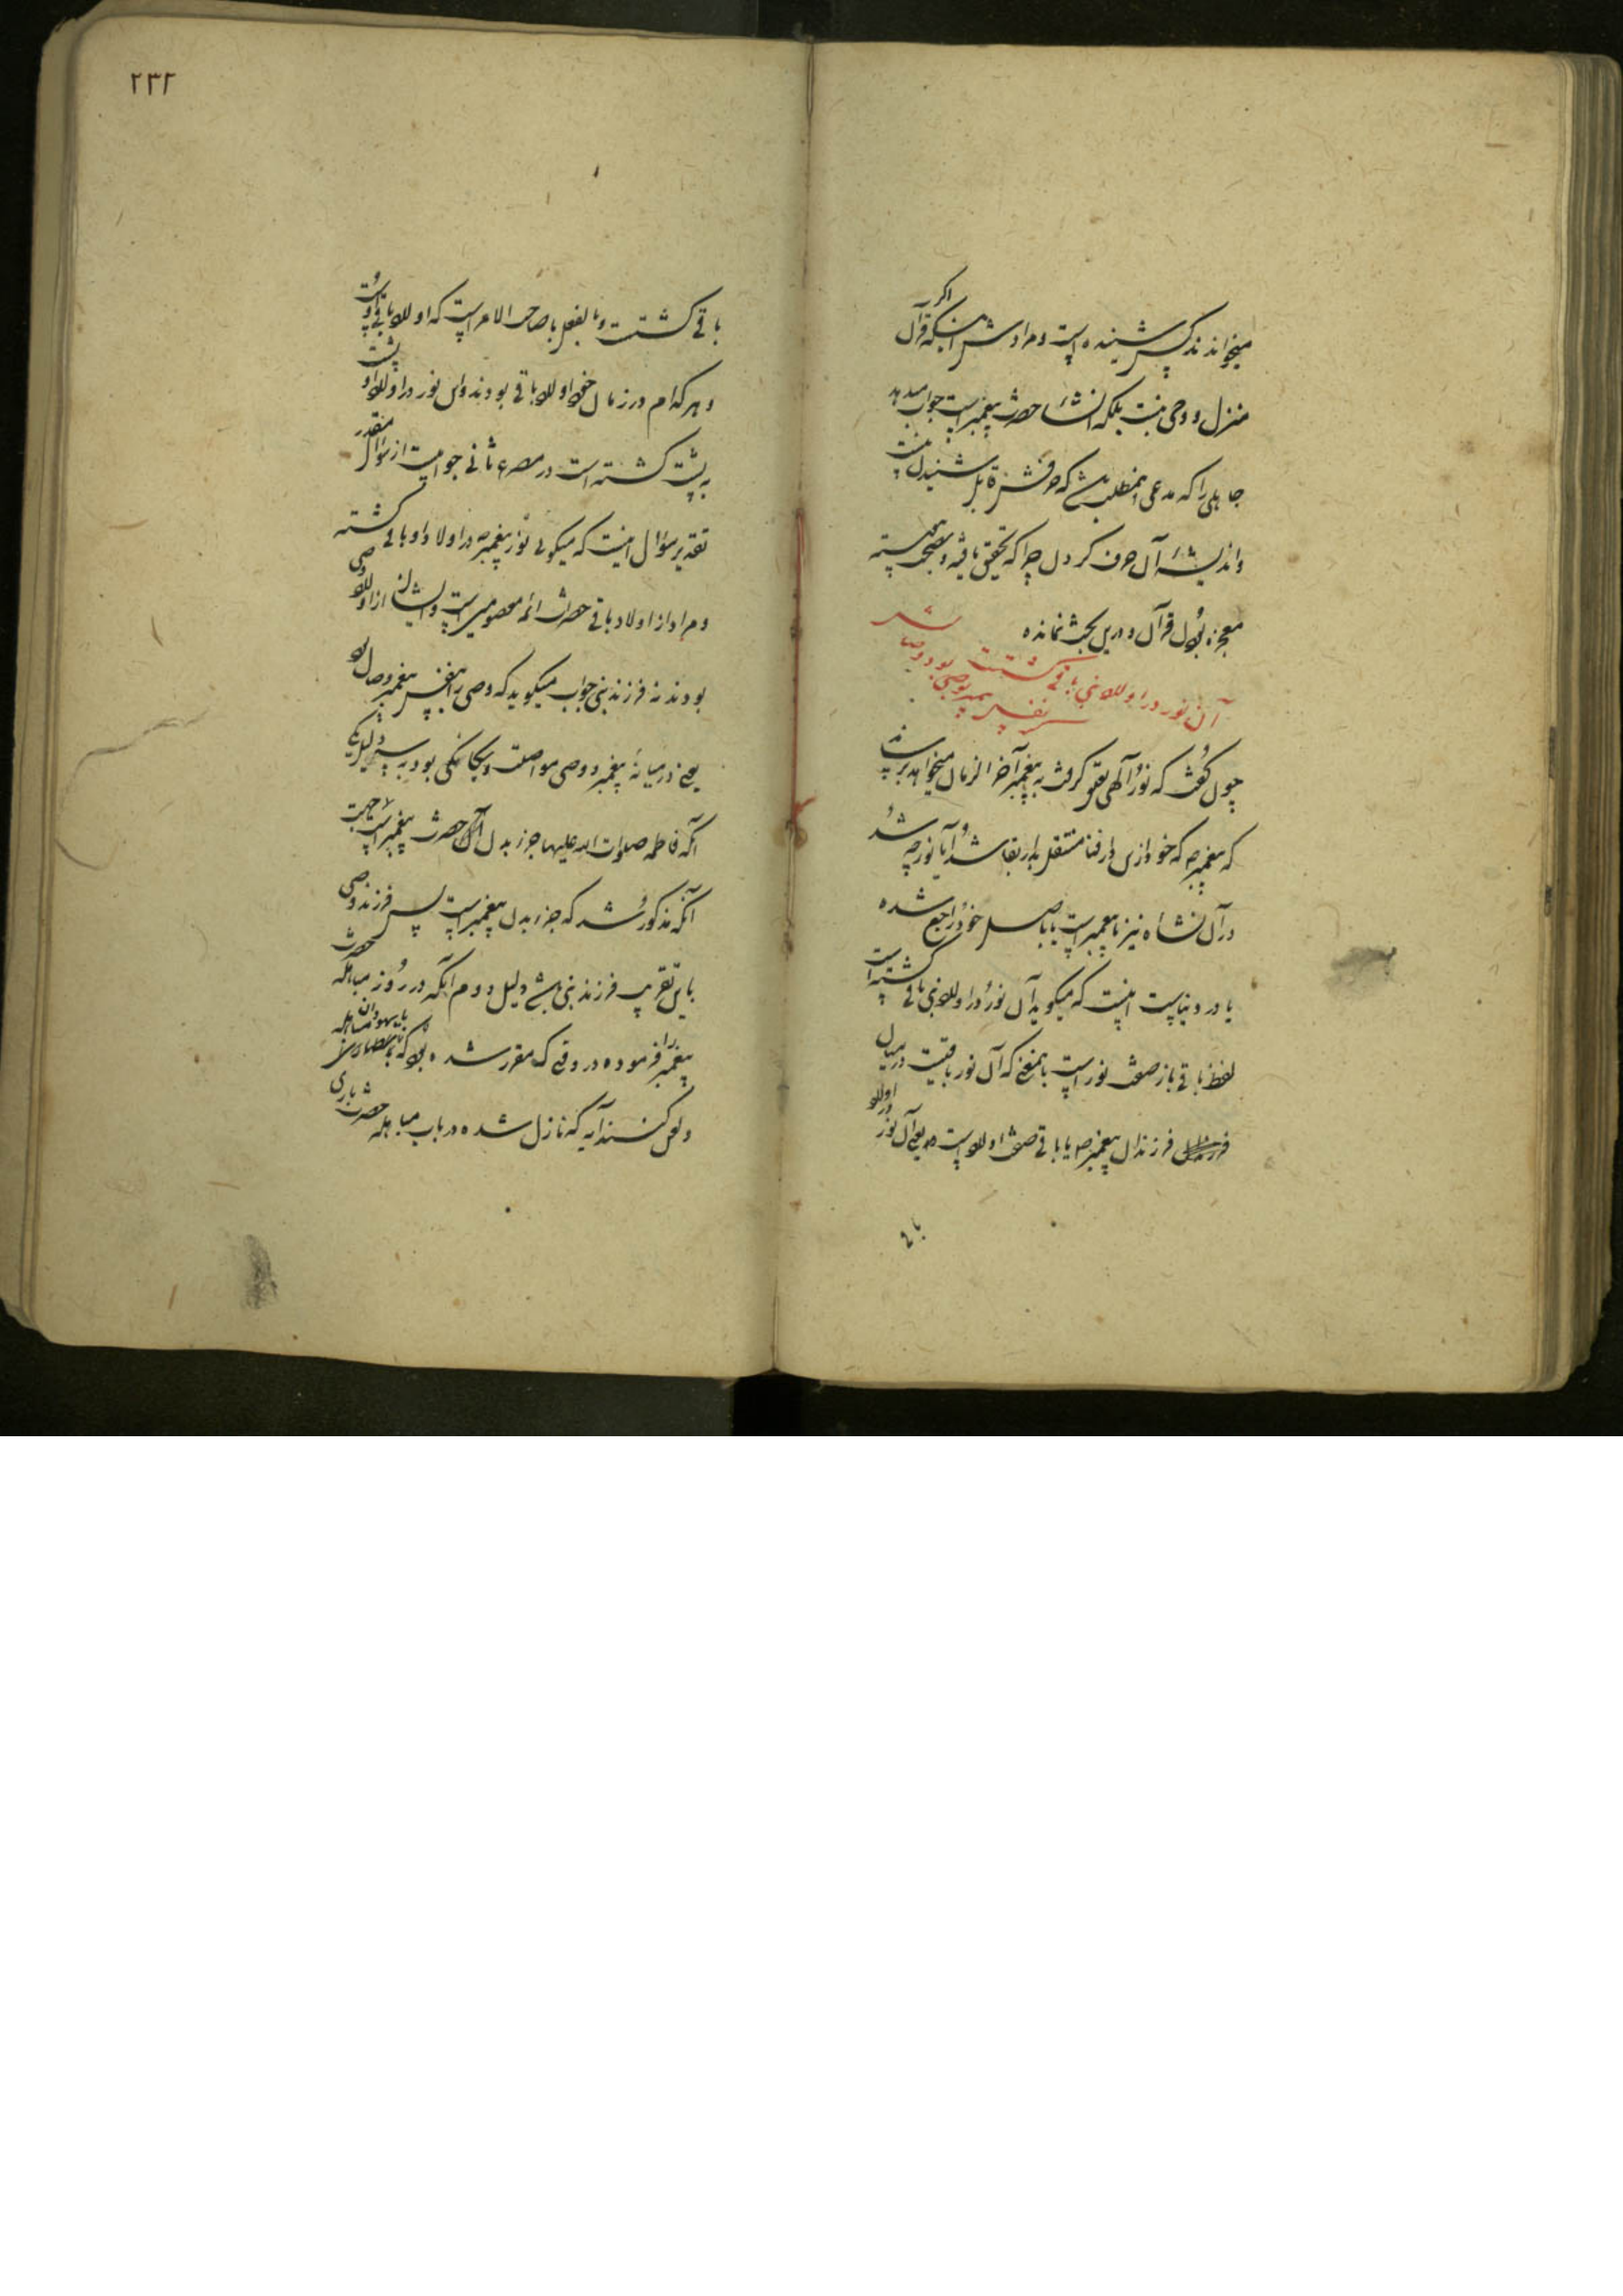 میخواندند کس شنیده است و مرادش اینکه قرآن اگر
منزل و وحی نیست بلکه انشاء حضرت پیغمبر است جواب میدهد
جاهلی را که مدعی اینمطلب باشد که حرفش قابل شنیدن نیست
و اندیشهٔ آن حرف کردن چرا که تحقیق یافته و بصحت پیوسته
معجزه بودن قرآن و درین بحث نمانده
آن نور در اولاد نبی باقی گشتست
نفس پیمبر وصی بود و وصالش
چون گفت که نور الهی تعلق گرفت به پیغمبر آخر الزمان میخواهد برساند
که پیغمبر ص که خود ازین دار فنا منتقل بدار بقا شد آیا نور چه شد
در آن نشأه نیز با پیغمبر است یا باصل خود راجع شده
یا در دنیاست اینست که میگوید آن نور در اولاد نبی باقی گشته است
لفظ باقی باز صفت نور است باینمعنی که آن نور باقیست در میان
فرزندان پیغمبر ص یا باقی صفت اولاد است یعنی آن نور در اولاد
باقی
٢٣٢
باقی گشتست و بالفعل با صاحب الامر است که اولاد باقی اوست
و هر کدام در زمان خود اولاد باقی بودند و این نور در اولاد او پشت
به پشت گشته است در مصرع ثانی جوابیست از سؤال مقدر
تقدیر سؤال اینست که میگوئی نور پیغمبر ص در اولاد او باقی گشته
و مراد از اولاد باقی حضرت ائمه معصومین است و ایشان از اولاد وصی
بودند نه فرزند نبی جواب میگوید که وصی را نفس پیغمبر وصال بود
یعنی در میانه پیغمبر و وصی مواصلت و یگانگی بود به سه دلیل یکی
آنکه فاطمه صلوات الله علیها جزء بدن آن حضرت پیغمبر است بجهت
آنکه مذکور شد که جزء بدن پیغمبر است پس فرزند وصی
باین تقریب فرزند نبی باشد دلیل دوم آنکه در روز مباهله حضرت
پیغمبر را فرموده در وقتی که مقرر شده بود که با یهودان مباهله
و لعن کنند آیه که نازل شده در باب مباهله حضرت باری